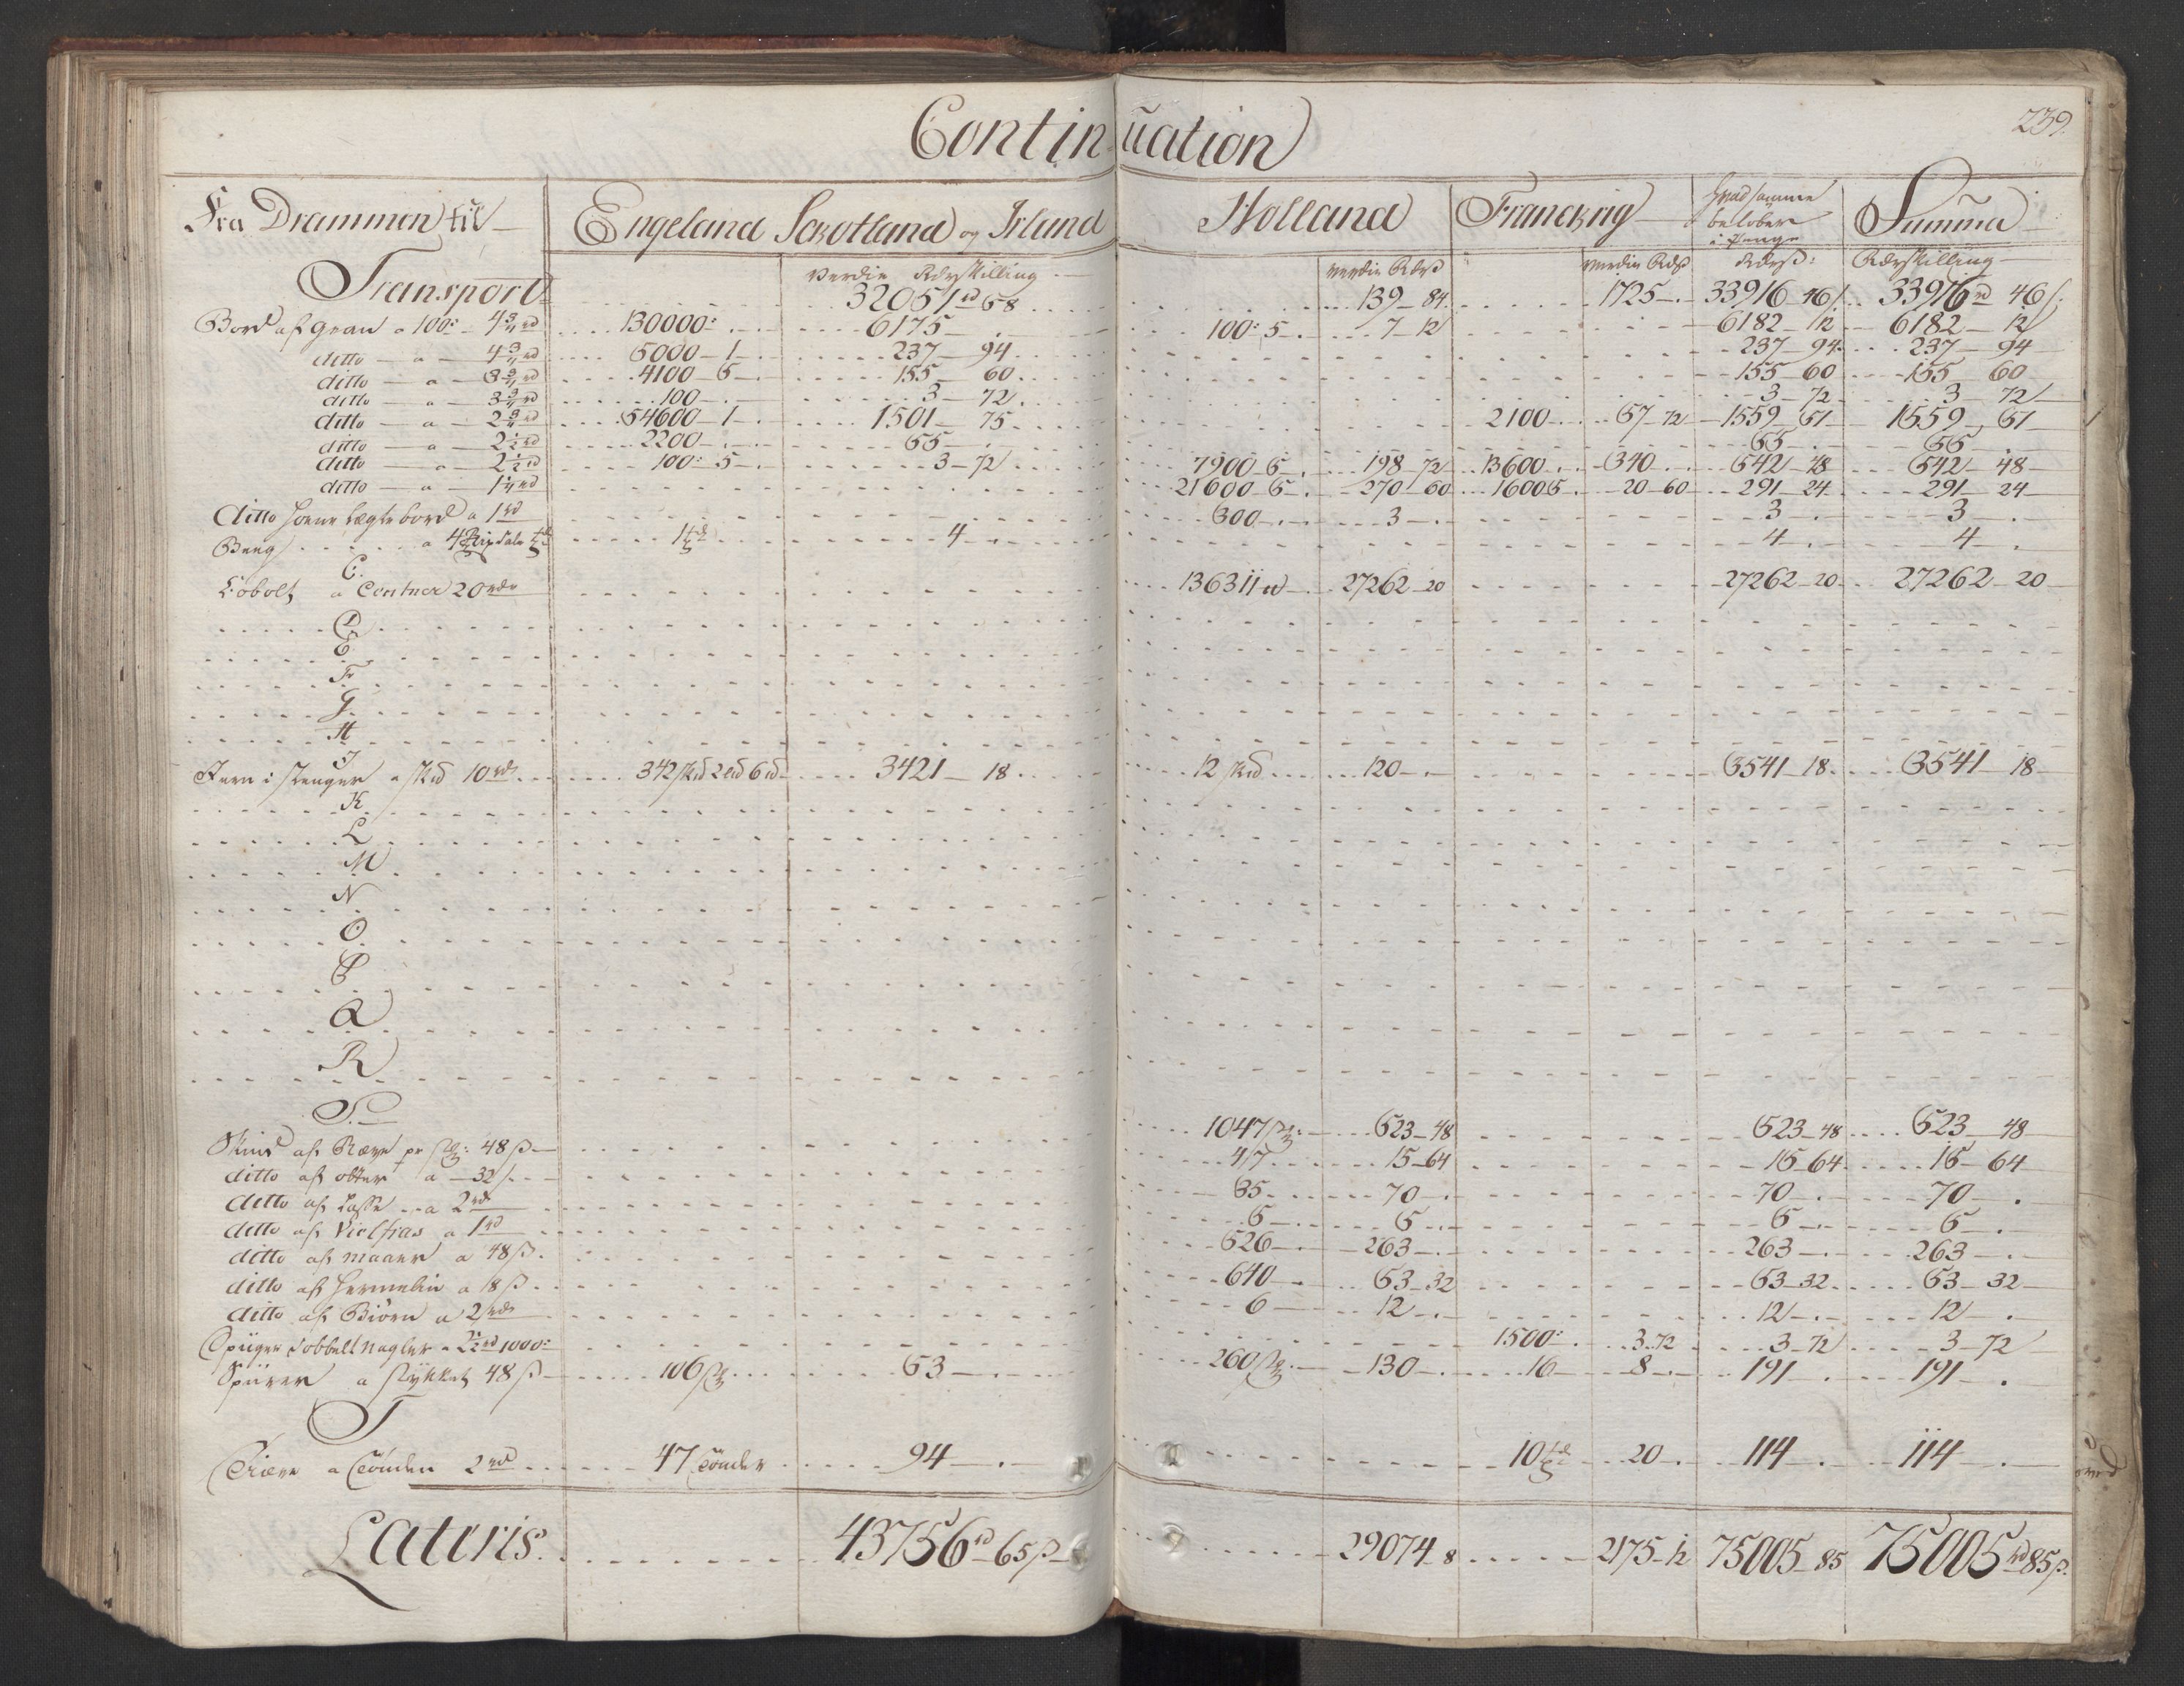 Continuation
239.
Fra Drammen til Engeland Scotland og Irland Holland Franckrig hvad samme beløber i Penge Summa
Verdie Rdr Skilling Verdie Rdß Verdie Rdß Rdß: Rdr Skilling
Transport 32051 rd 68 139 84 1725 33916 46 33916 rd 46 ß.
Bord af gran a 100: 4 3/4 rd 130000: 6175 100: 5 7 12 6182 12 6182 12
ditto a 4 3/4 rd 5000 1 237 94 237 94 237 94
ditto a 3 3/4 rd 4100 5 155 60 155 60 155 60
ditto a 3 3/4 rd 100 3 72 3 72 3 72
ditto a 2 3/4 rd 54600 1 1501 75 2100 57 72 1559 51 1559 51
ditto a 2 1/2 rd 2200 55 55 55
ditto a 2 1/2 rd 100: 5 3 72 7900 5 198 72 13600 340 542 48 542 48
ditto a 1 1/4 rd 21600 5 270 60 1600 5 20 60 291 24 291 24
ditto Lægtebord a 1 rd 300 3 3 3
Beeg a 4 Rixdale td 1 td 4 4 4
C.
Cobolt a Centner 20 rdr 136311 27262 20 27262 20 27262 20
D
E
F
G
H
J
Jern i stenger a skd 10 rd 342 skd 2 6 3421 18 12 skd 120 3541 18 3541 18
K
L
M
N
O
P
Q
R
S.
Skind af Ræve pr st: 48 ß 1047 st: 523 48 523 48 523 48
ditto af otter a 32 ß 47 15 64 15 64 15 64
ditto af Losse a 2 rdr 35 70 70 70
ditto af Vielfras a 1 rd 5 5 5 5
ditto af maarer a 48 ß. 526 263 263 263
ditto af Hermelin a 8 ß 640 53 32 53 32 53 32
ditto af Biørn a 2 rdr 6 12 12 12
Spiiger dobbelt nagler a 2 1/2 rd 1000: 1500: 3 72 3 72 3 72
Spiirer a stÿkket 48 ß 106 st 53 260 st 130 16 8 191 191
T
Tiære a Tønden 2 rd 47 Tønder 94 10 td 20 114 114
Lateris. 43756 rd 65 ß 29074 8 2175 12 75005 85 75005 rd 85 ß.